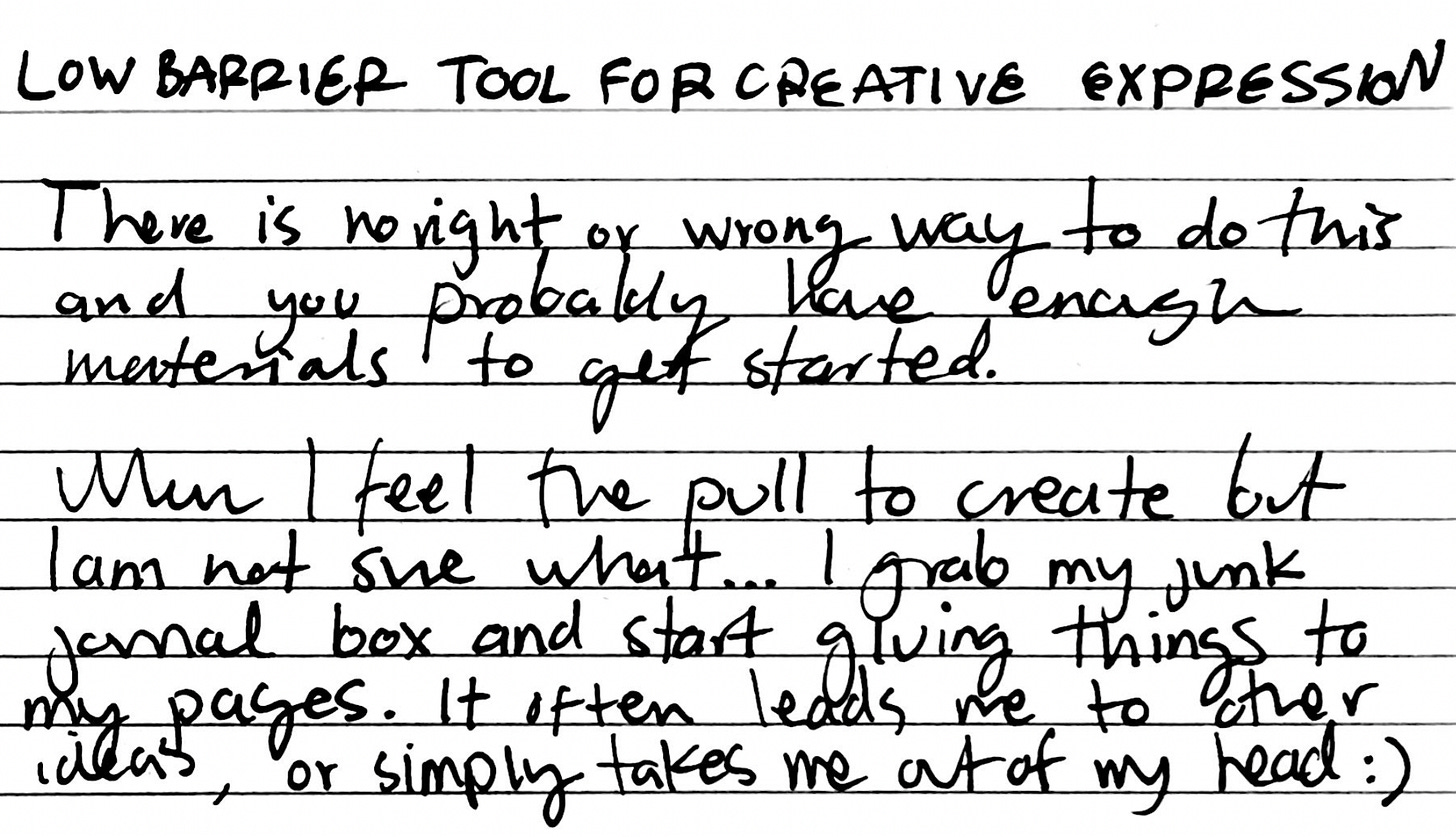 LOW BARRIER TOOL FOR CREATIVE EXPRESSION
There is no right or wrong way to do this
and you probably have enough
materials to get started.
When I feel the pull to create but
I am not sure what... I grab my junk
journal box and start gluing things to
my pages. It often leads me to other
ideas, or simply takes me out of my head :)